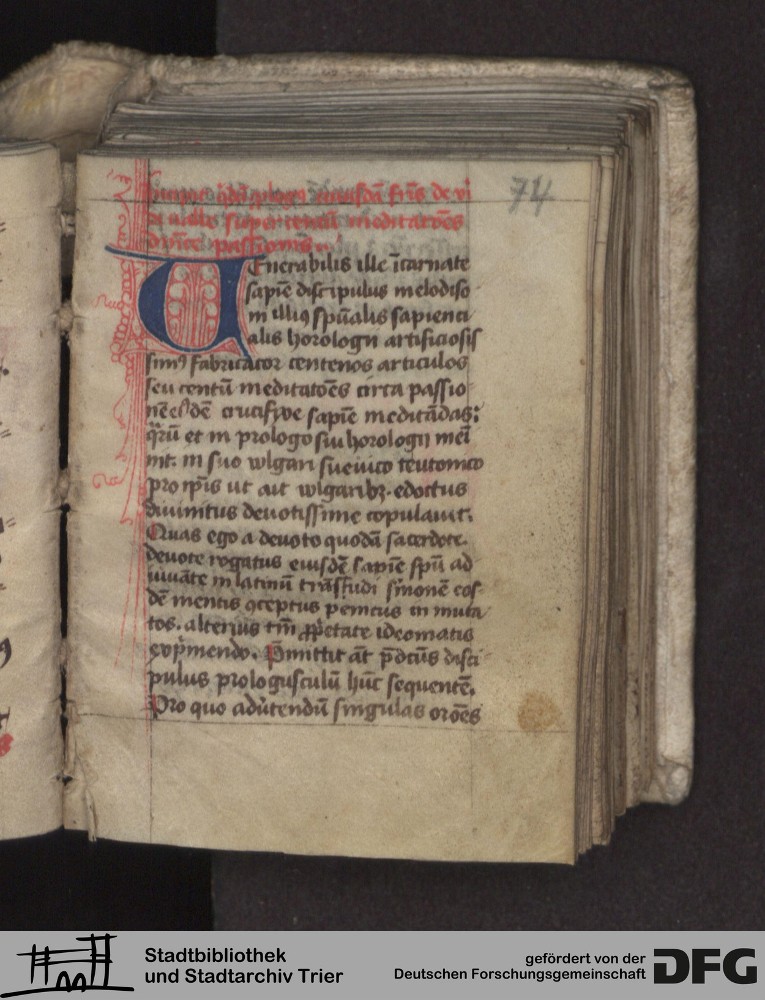 74
Incipit qda plog9 cuiusdā fris de vi
dimittic super centū meditatoēs
dnīce passionis
Venerabilis ille īcarnate
sapiē discipulus melodiso
m illi9 spūalis sapienci
alis horologii artificiosis
sim9 fabricator centenos articulos
seu centū meditatoēs circa passio
nē dē crucifixe sapiē meditādas:
qrū et in prologo sui horologii mei
nt. in suo wlgari sueuico teutonico
pro ip̄is ut ait wlgaribꝫ. edoctus
diuinitus deuotissime copulauit.
Quas ego a deuoto quodā sacerdote.
deuote rogatus eiusdē sapiē spū ad
iuuāte in latinū trāsfudi s̄monē eos
dē mentis ꝯceptus penitus in muta
tos. alterius tm̄ ꝓpetate ideomatis
exp̄mendo. P̄mittit āt p̄dcūs disci
pulus prologusculū hūc sequentē.
Pro quo adūtendū singulas oroēs
Stadtbibliothek
und Stadtarchiv Trier
gefördert von der
Deutschen Forschungsgemeinschaft
DFG